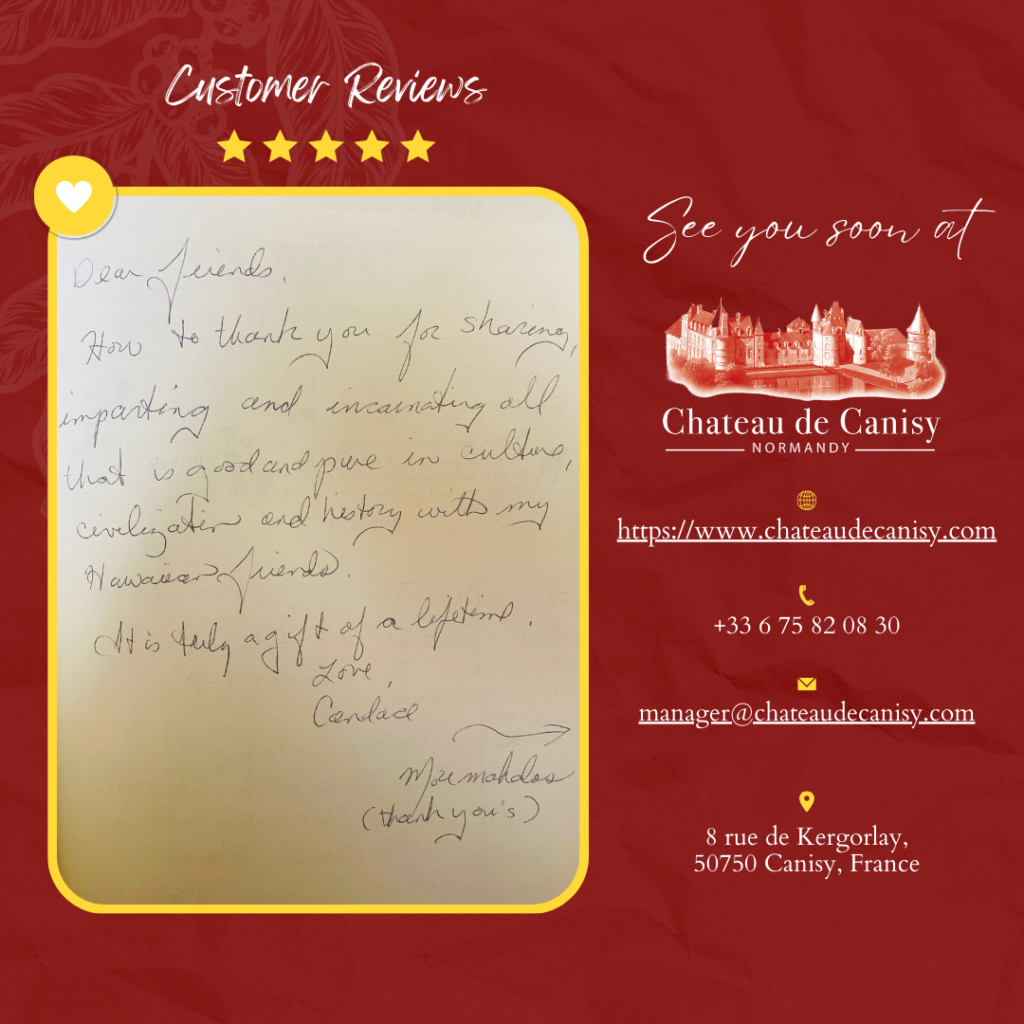 Customer Reviews
Dear friends,
How to thank you for sharing,
imparting and incarnating all
that is good and pure in culture,
civilization and history with my
Hawaiian friends.
It is truly a gift of a lifetime.
Love,
Candace
More mahalos
(thank you's)
See you soon at
Chateau de Canisy
NORMANDY
https://www.chateaudecanisy.com
+33 6 75 82 08 30
manager@chateaudecanisy.com
8 rue de Kergorlay,
50750 Canisy, France